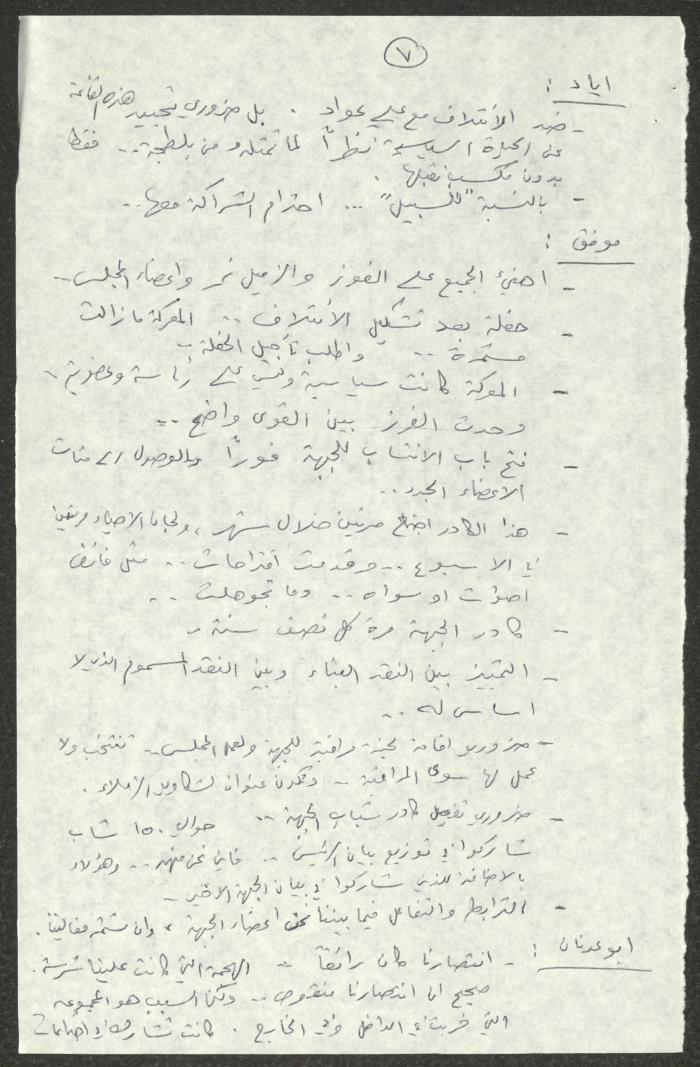 ٧
اياد :
- ضد الائتلاف مع علي عواد . بل ضروري تحييد هذه القائمة
عن الحلبة السياسية نظراً لما تمثله ومن بلطجة .. فقط
بدون مكسب نقبلها .
- بالنسبة "للسبيل" ... احترام الشراكة معها ..
موفق :
- اهنئ الجميع على الفوز والزميل نمر واعضاء المجلس ..
- حفلة بعد تشكيل الائتلاف .. المعركة ما زالت
مستمرة .. واطلب تأجيل الحفلة ..
- المعركة كانت سياسية وليس على رئاسة وعضوية ..
وحدث الفرز بين القوى واضح ..
- فتح باب الانتساب للجبهة فوراً والوصول الى مئات
الاعضاء الجدد ..
- هذا الكادر اجتمع مرتين خلال شهر ، ولجان الاحياء مرتين
في الاسبوع .. وقدمت اقتراحات .. مثل فائض
اصوات او سواه .. وما تجوهلت ..
- كادر الجبهة مرة كل نصف سنة ..
- التمييز بين النقد البناء وبين النقد المسموم الذي لا
اساس له ..
- ضروري اقامة لجنة مراقبة للجبهة ولعمل المجلس .. تنتخب ولا
عمل لها سوى المراقبة .. وتكون عنوان لشكاوي الزملاء .
- ضروري تفعيل كادر شباب الجبهة .. حوالي ١٥٠ شاب
شاركوا في توزيع بيان الرئيس .. فاين نحن منهم .. وهؤلاء
بالاضافة للذين شاركوا في بيان الجبهة الاخير ..
- الترابط والتفاعل فيما بيننا نحن اعضاء الجبهة ، وان نستمر
ابو عدنان : - انتصارنا كان رائعاً .. الهجمة التي كانت علينا شرسة .
صحيح ان انتصارنا منقوص .. ولكن السبب هو المجموعه
التي خربت في الداخل وفي الخارج . كانت تشارك في